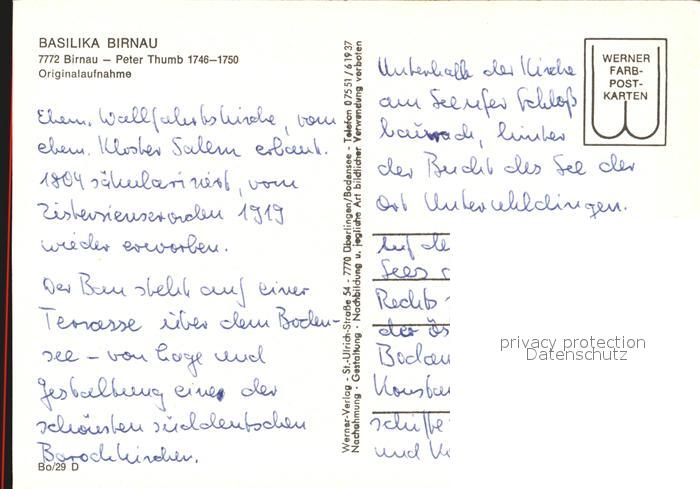 BASILIKA BIRNAU
7772 Birnau – Peter Thumb 1746–1750
Originalaufnahme
Ehem. Wallfahrtskirche, vom
ehem. Kloster Salem erbaut.
1804 säkularisiert, vom
Zisterzienserorden 1919
wieder erworben.
Der Bau steht auf einer
Terrasse über dem Boden-
see – von Lage und
Gestaltung eine der
schönsten süddeutschen
Barockkirchen.
Bo/29 D
Werner-Verlag - St.-Ulrich-Straße 54 - 7770 Überlingen/Bodensee - Telefon 07551/61937
Nachahmung - Gestaltung - Nachbildung u. jegliche Art bildlicher Verwendung verboten
WERNER
FARB-
POST-
KARTEN
Unterhalb der Kirche
am Seeufer Schloß
hinter
der Bucht des See der
Ort Unteruhldingen.
Auf de
Sees
Rechts
der ös
Boden
Konstan
schiffe
und K
privacy protection
Datenschutz